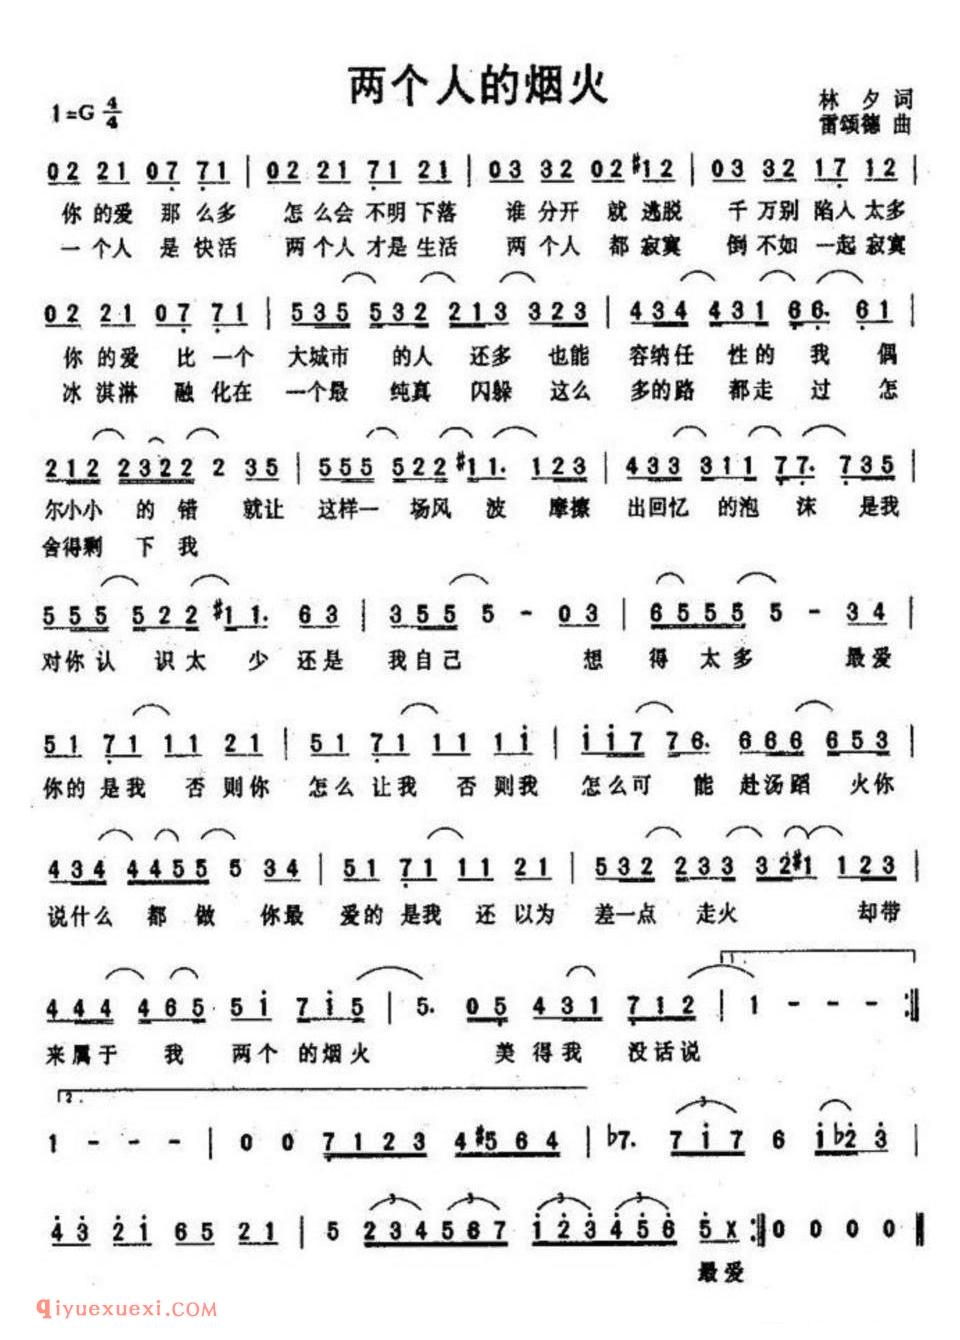 两个人的烟火
1=G 4/4
林 夕 词
雷颂德 曲
02 21 07 71 | 02 21 71 21 | 03 32 02 #12 | 03 32 17 12 |
你的爱 那么多 怎么会 不明下落 谁分开 就逃脱 千万别 陷入太多
一个人 是快活 两个人 才是生活 两个人 都寂寞 倒不如 一起寂寞
02 21 07 71 | 535 532 213 323 | 434 431 66. 61 |
你的爱 比一个 大城市 的人 还多 也能 容纳任 性的 我 偶
冰淇淋 融化在 一个最 纯真 闪躲 这么 多的路 都走 过 怎
212 2322 2 35 | 555 522 #11. 123 | 433 311 77. 735 |
尔小小 的错 就让 这样一 场风 波 摩擦 出回忆 的泡 沫 是我
舍得剩 下我
555 522 #11. 63 | 355 5 - 03 | 6555 5 - 34 |
对你认 识太 少 还是 我自己 想 得 太多 最爱
51 71 11 21 | 51 71 11 1i | ii7 76. 666 653 |
你的是我 否则你 怎么让我 否则我 怎么可 能 赴汤蹈 火你
434 4455 5 34 | 51 71 11 21 | 532 233 32#1 123 |
说什么 都做 你最 爱的是我 还以为 差一点 走火 却带
1.
444 465 5i 7i5 | 5. 05 431 712 | 1 - - - :||
来属于 我 两个 的烟火 美得我 没话说
2.
1 - - - | 0 0 7123 4#564 | b7. 7i7 6 ib23 |
3
43 2i 65 21 | 5 234567 i23456 5X :|| 0 0 0 0 ||
3 3 3 3
最爱
qiyuexuexi.COM